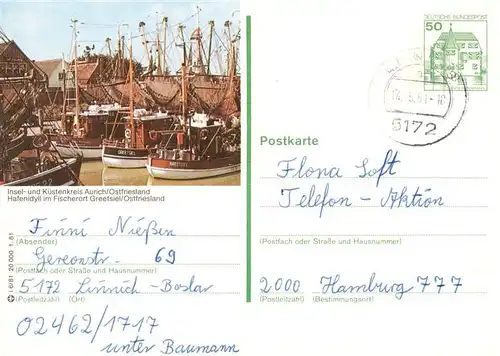 Insel- und Küstenkreis Aurich/Ostfriesland
Hafenidyll im Fischerort Greetsiel/Ostfriesland
Finni Nießen
(Absender)
Gereonstr. 69
(Postfach oder Straße und Hausnummer)
5172 Linnich-Boslar
(Postleitzahl) (Ort)
02462/1717
unter Baumann
1. 81
DEUTSCHE BUNDESPOST
50
5172
Postkarte
Flona Soft
Telefon-Aktion
(Postfach oder Straße und Hausnummer)
2000 Hamburg 777
(Postleitzahl) (Bestimmungsort)